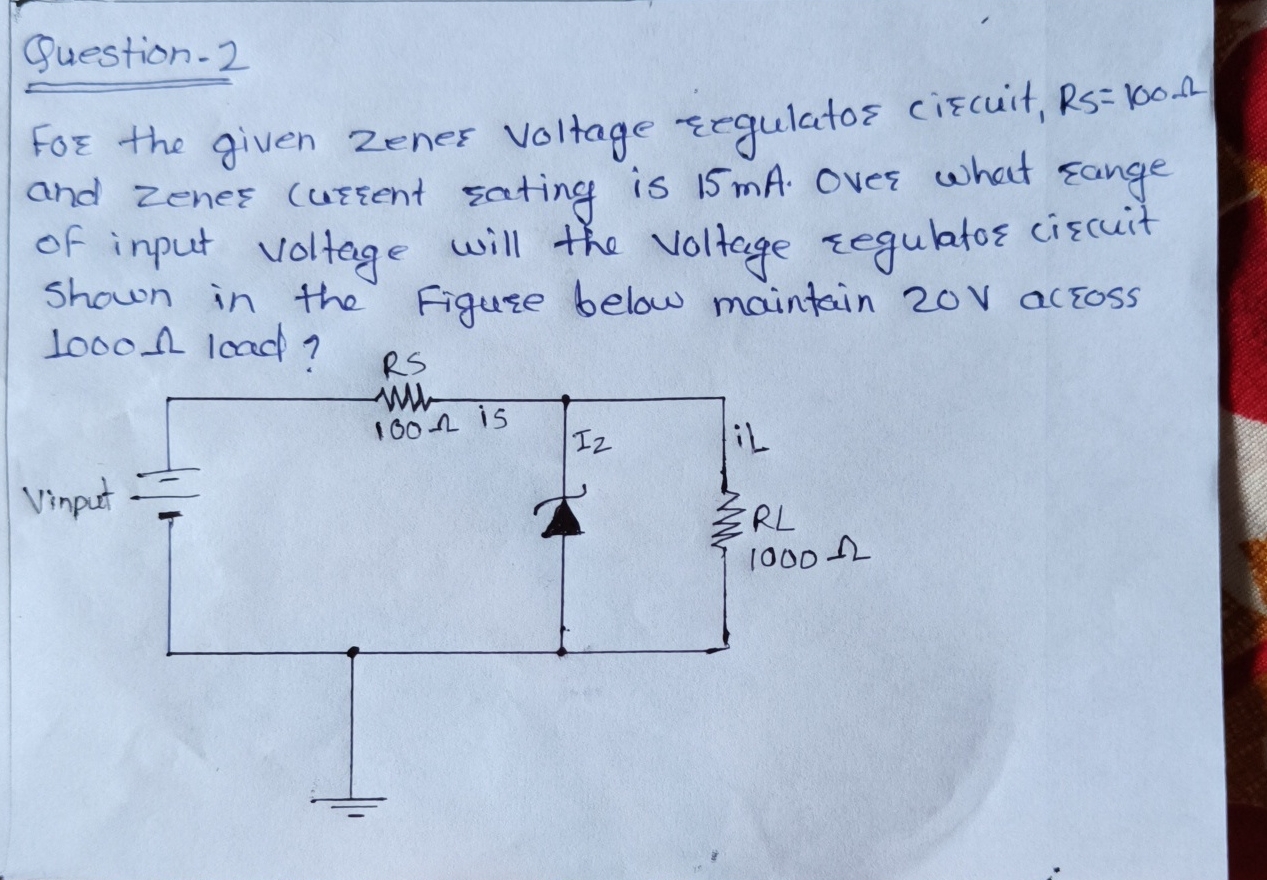 Question-2
For the given Zener Voltage regulator circuit, RS=100Ω
and Zener current rating is 15mA. Over what range
of input voltage will the voltage regulator circuit
Shown in the Figure below maintain 20V across
1000Ω load?
RS
100Ω is
IZ
iL
Vinput
RL
1000Ω